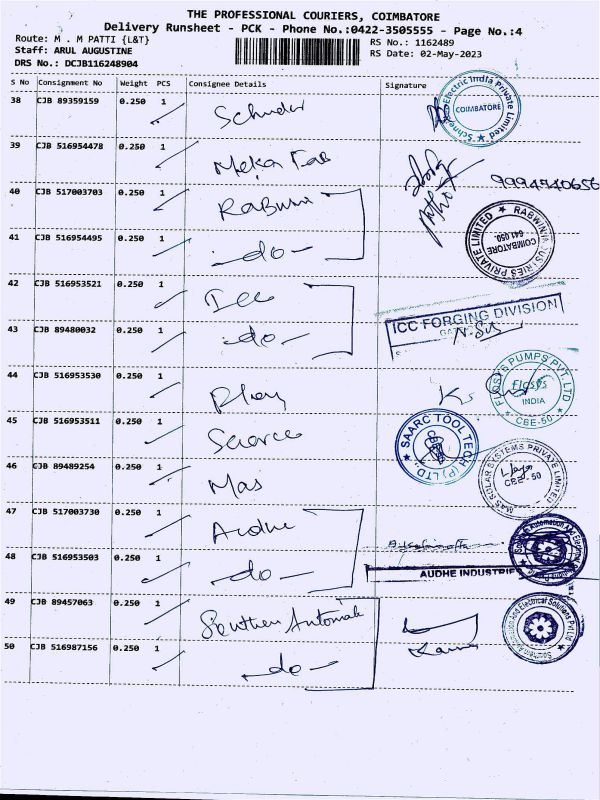 THE PROFESSIONAL COURIERS, COIMBATORE
Delivery Runsheet - PCK - Phone No.:0422-3505555 - Page No.:4
Route: M . M PATTI {L&T}
RS No.: 1162489
Staff: ARUL AUGUSTINE
RS Date: 02-May-2023
DRS No.: DCJB116248904
S No Consignment No Weight PCS Consignee Details Signature
38 CJB 89359159 0.250 1 Electric India Private Limited COIMBATORE
39 CJB 516954478 0.250 1 Meka
40 CJB 517003703 0.250 1 PRIVATE LIMITED COIMBATORE 641 050.
41 CJB 516954495 0.250 1 -do-
42 CJB 516953521 0.250 1 ICC FORGING DIVISION
43 CJB 89480032 0.250 1 -do-
44 CJB 516953530 0.250 1 PUMPS PVT. LTD INDIA CBE-50
45 CJB 516953511 0.250 1 SAARC TOOL TECH (P) LTD.,
46 CJB 89489254 0.250 1 Mas MAS SOLAR SYSTEMS PRIVATE LIMITED CBE - 50
47 CJB 517003730 0.250 1
48 CJB 516953503 0.250 1 -do- AUDHE INDUSTRIE
49 CJB 89457063 0.250 1 Southern Automation And Electrical Solutions Pvt Ltd
50 CJB 516987156 0.250 1 -do-